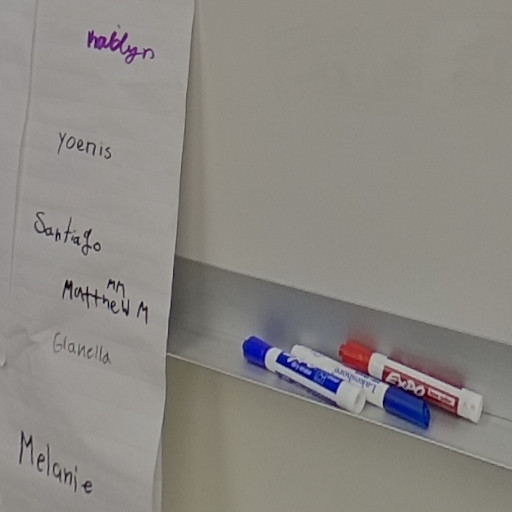 Kaitlyn
Yoenis
Santiago
MM
Matthew M
Gianella
Melanie
Lakeshore
EXPO